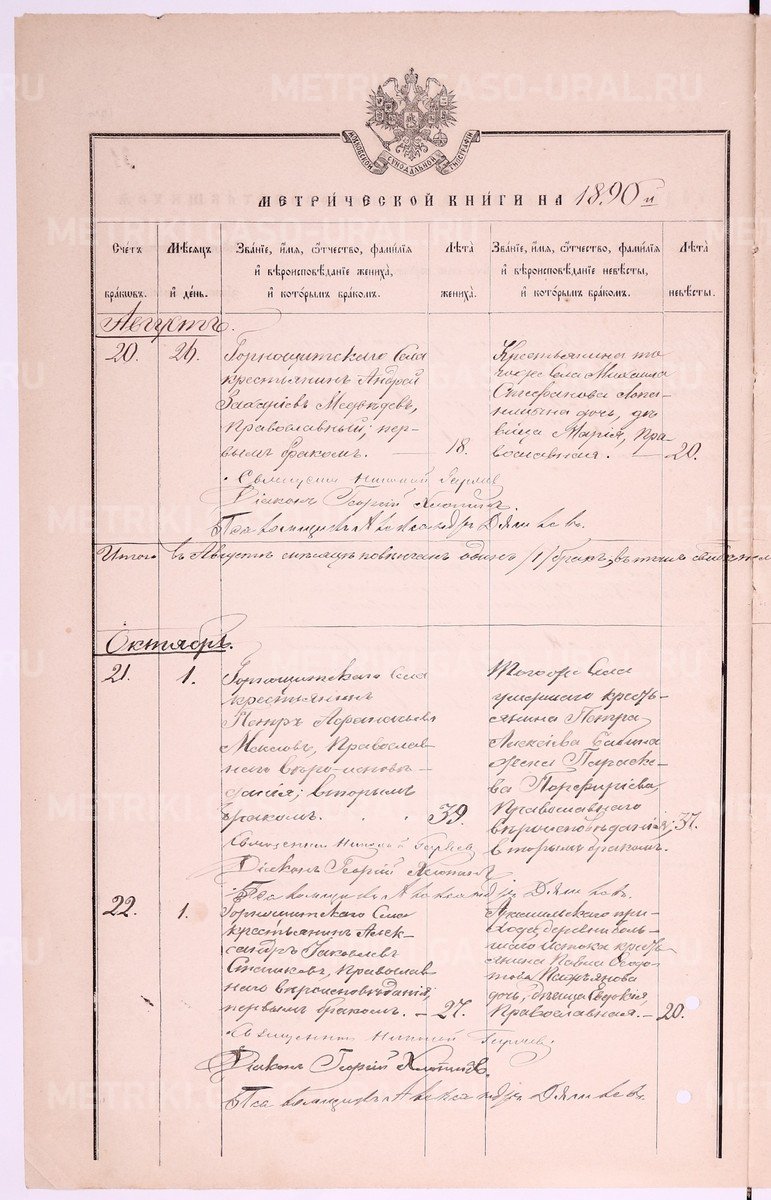 МОСКОВСКОЙ СѴНОДАЛЬНОЙ ТИПОГРАФІИ
МЕТРИ́ЧЕСКОЙ КНИ́ГИ НА 1890 й
Счетъ браковъ.
Мѣсяцъ и день.
Званіе, имя, отчество, фамилія и вѣроисповѣданіе жениха, и которымъ бракомъ.
Лѣта жениха.
Званіе, имя, отчество, фамилія и вѣроисповѣданіе невѣсты, и которымъ бракомъ.
Лѣта невѣсты.
Августъ.
20. 26.
Горнощитскаго Села
крестьянинъ Андрей
Захаріевъ Медвѣдевъ,
Православный; пер-
вымъ бракомъ. — 18.
Крестьянина то
гоже села Михаила
Стефанова
дочь, дѣ
вица Марія, Пра-
вославная. — 20.
Священникъ Николай
Діаконъ Георгій
Псаломщикъ Александръ
Итого въ Августѣ мѣсяцѣ повѣнчанъ одинъ /1/ бракъ, въ чемъ
Октябрь.
21. 1.
Горнощитскаго Села
крестьянинъ
Петръ Афанасьевъ
Православ-
наго вѣроисповѣ-
данія; вторымъ
бракомъ. 39.
Тогоже Села
умершаго кресть-
янина Петра
Алексѣева
жена Параске-
ва Порфиріева,
Православнаго
вѣроисповѣданія; 37.
вторымъ бракомъ.
Священникъ Николай
Діаконъ Георгій
Псаломщикъ Александръ
22. 1.
Горнощитскаго Села
крестьянинъ Алек-
сандръ Іаковлевъ
Православ-
наго вѣроисповѣданія,
первымъ бракомъ. — 27.
Арамильскаго при-
хода, деревни Боль-
шаго Истока кресть-
янина Павла Ѳеодо-
това
дочь, дѣвица Евдокія,
Православная. — 20.
Священникъ Николай
Діаконъ Георгій
Псаломщикъ Александръ